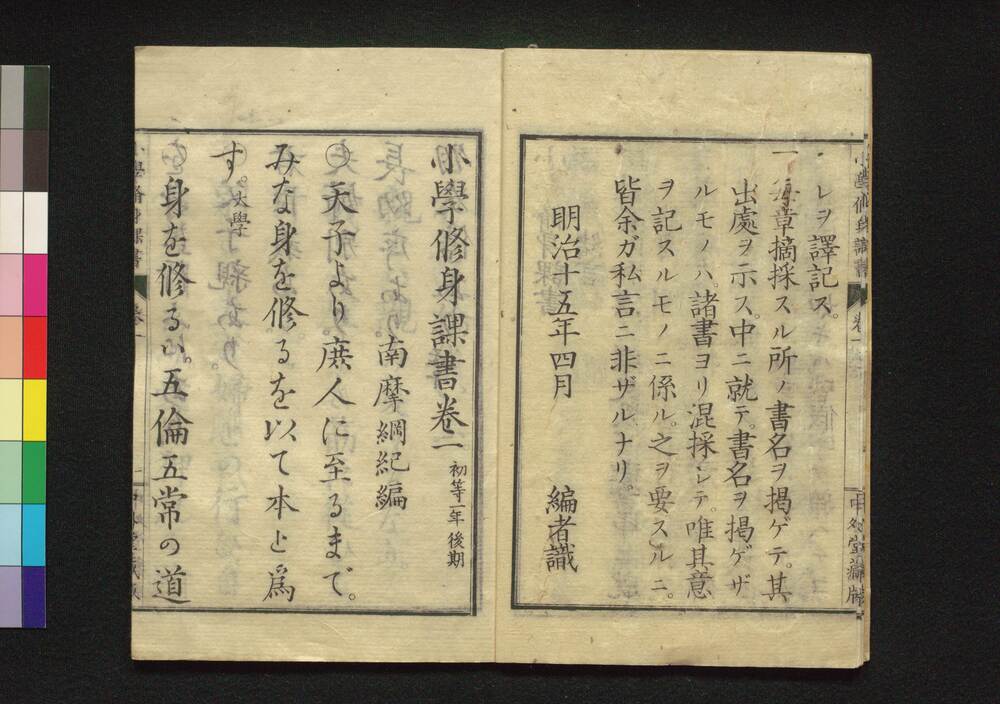 レヲ譯記ス。
一 每章摘採スル所ノ書名ヲ掲ゲテ。其
出處ヲ示ス。中ニ就テ。書名ヲ掲ゲザ
ルモノハ。諸書ヨリ混採シテ。唯其意
ヲ記スルモノニ係ル。之ヲ要スルニ。
皆余ガ私言ニ非ザルナリ。
明治十五年四月 編者識
小學修身課書卷一 初等一年後期
南摩綱紀編
○天子より。庶人に至るまで。
みな身を修るを以て本と爲
す。大學
○身を修るハ。五倫五常の道